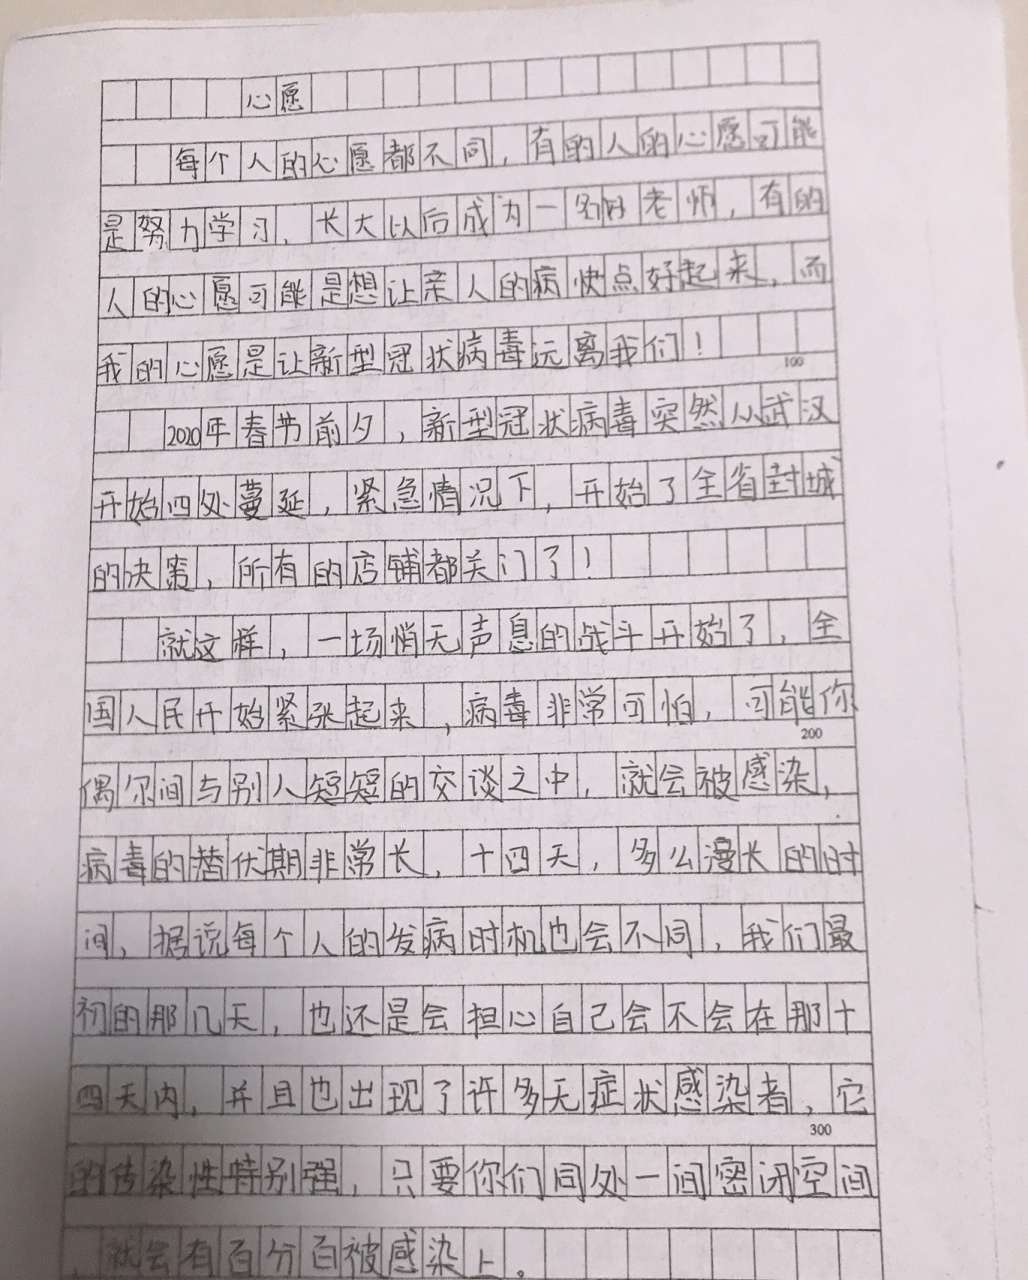 心愿
每个人的心愿都不同，有的人的心愿可能
是努力学习，长大以后成为一名好老师，有的
人的心愿可能是想让亲人的病快点好起来，而
我的心愿是让新型冠状病毒远离我们！
100
2020年春节前夕，新型冠状病毒突然从武汉
开始四处蔓延，紧急情况下，开始了全省封城
的决策，所有的店铺都关门了！
就这样，一场悄无声息的战斗开始了，全
国人民开始紧张起来，病毒非常可怕，可能你
200
偶尔间与别人短短的交谈之中，就会被感染，
病毒的替伏期非常长，十四天，多么漫长的时
间，据说每个人的发病时机也会不同，我们最
初的那几天，也还是会担心自己会不会在那十
四天内，并且也出现了许多无症状感染者，它
300
的传染性特别强，只要你们同处一间密闭空间
，就会有百分百被感染上。